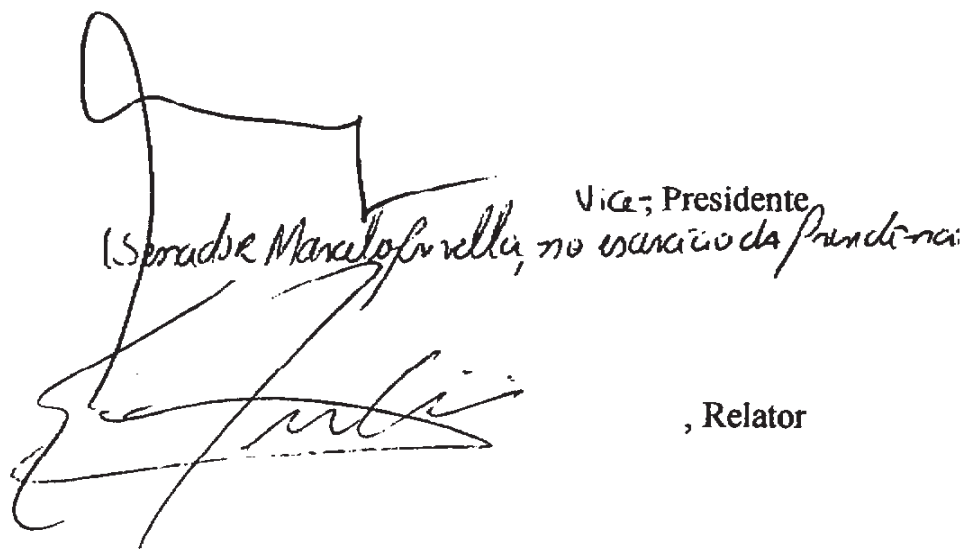 Vice-, Presidente
(Senador Marcelo Crivella, no exercício da Presidência
, Relator